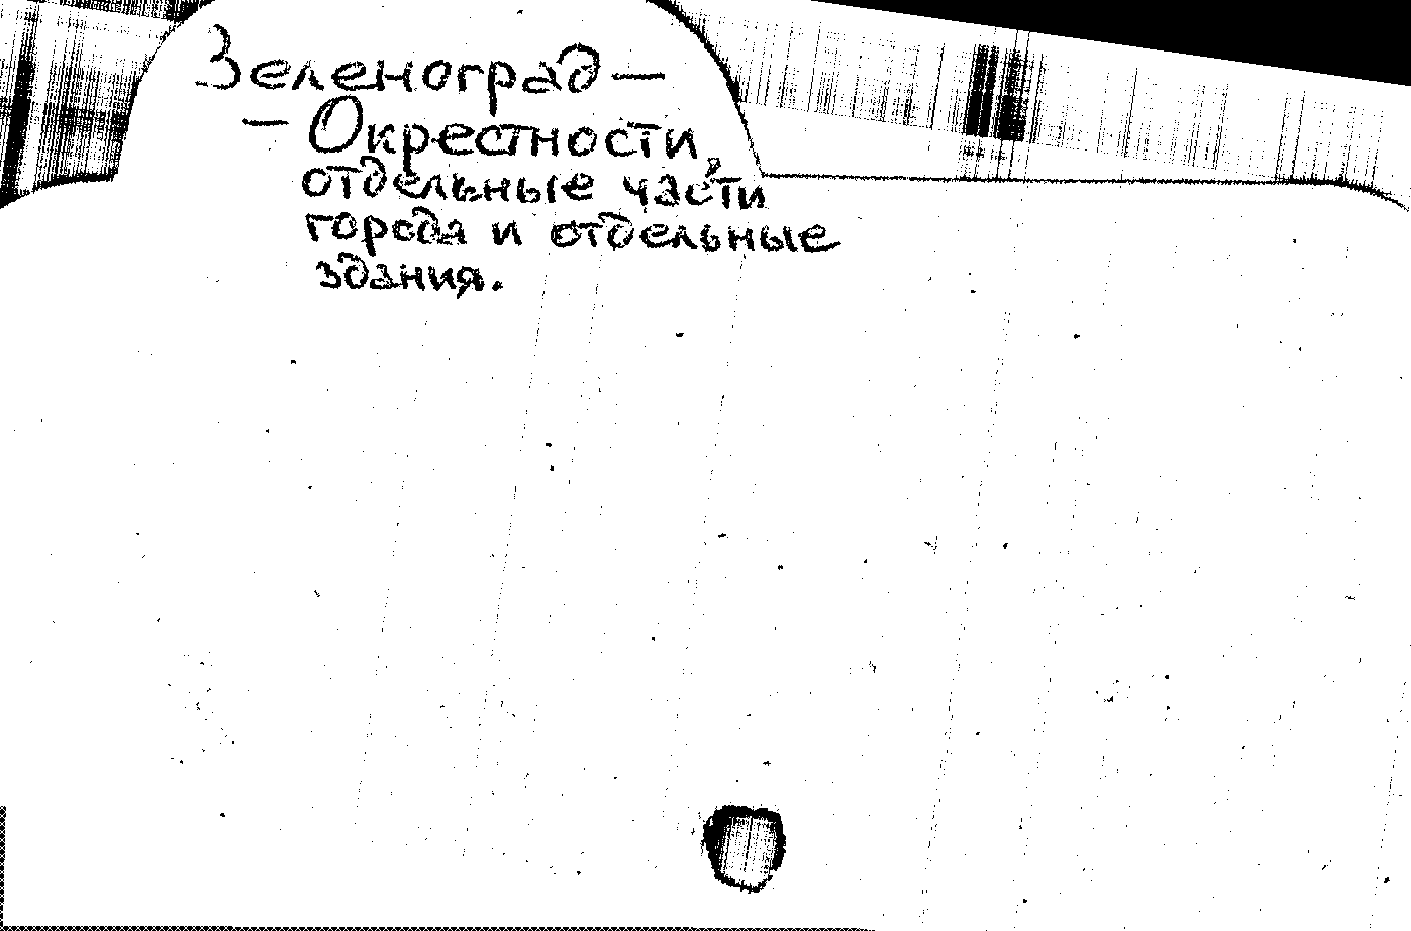 Зеленоград —
— Окрестности,
отдельные части
города и отдельные
здания.